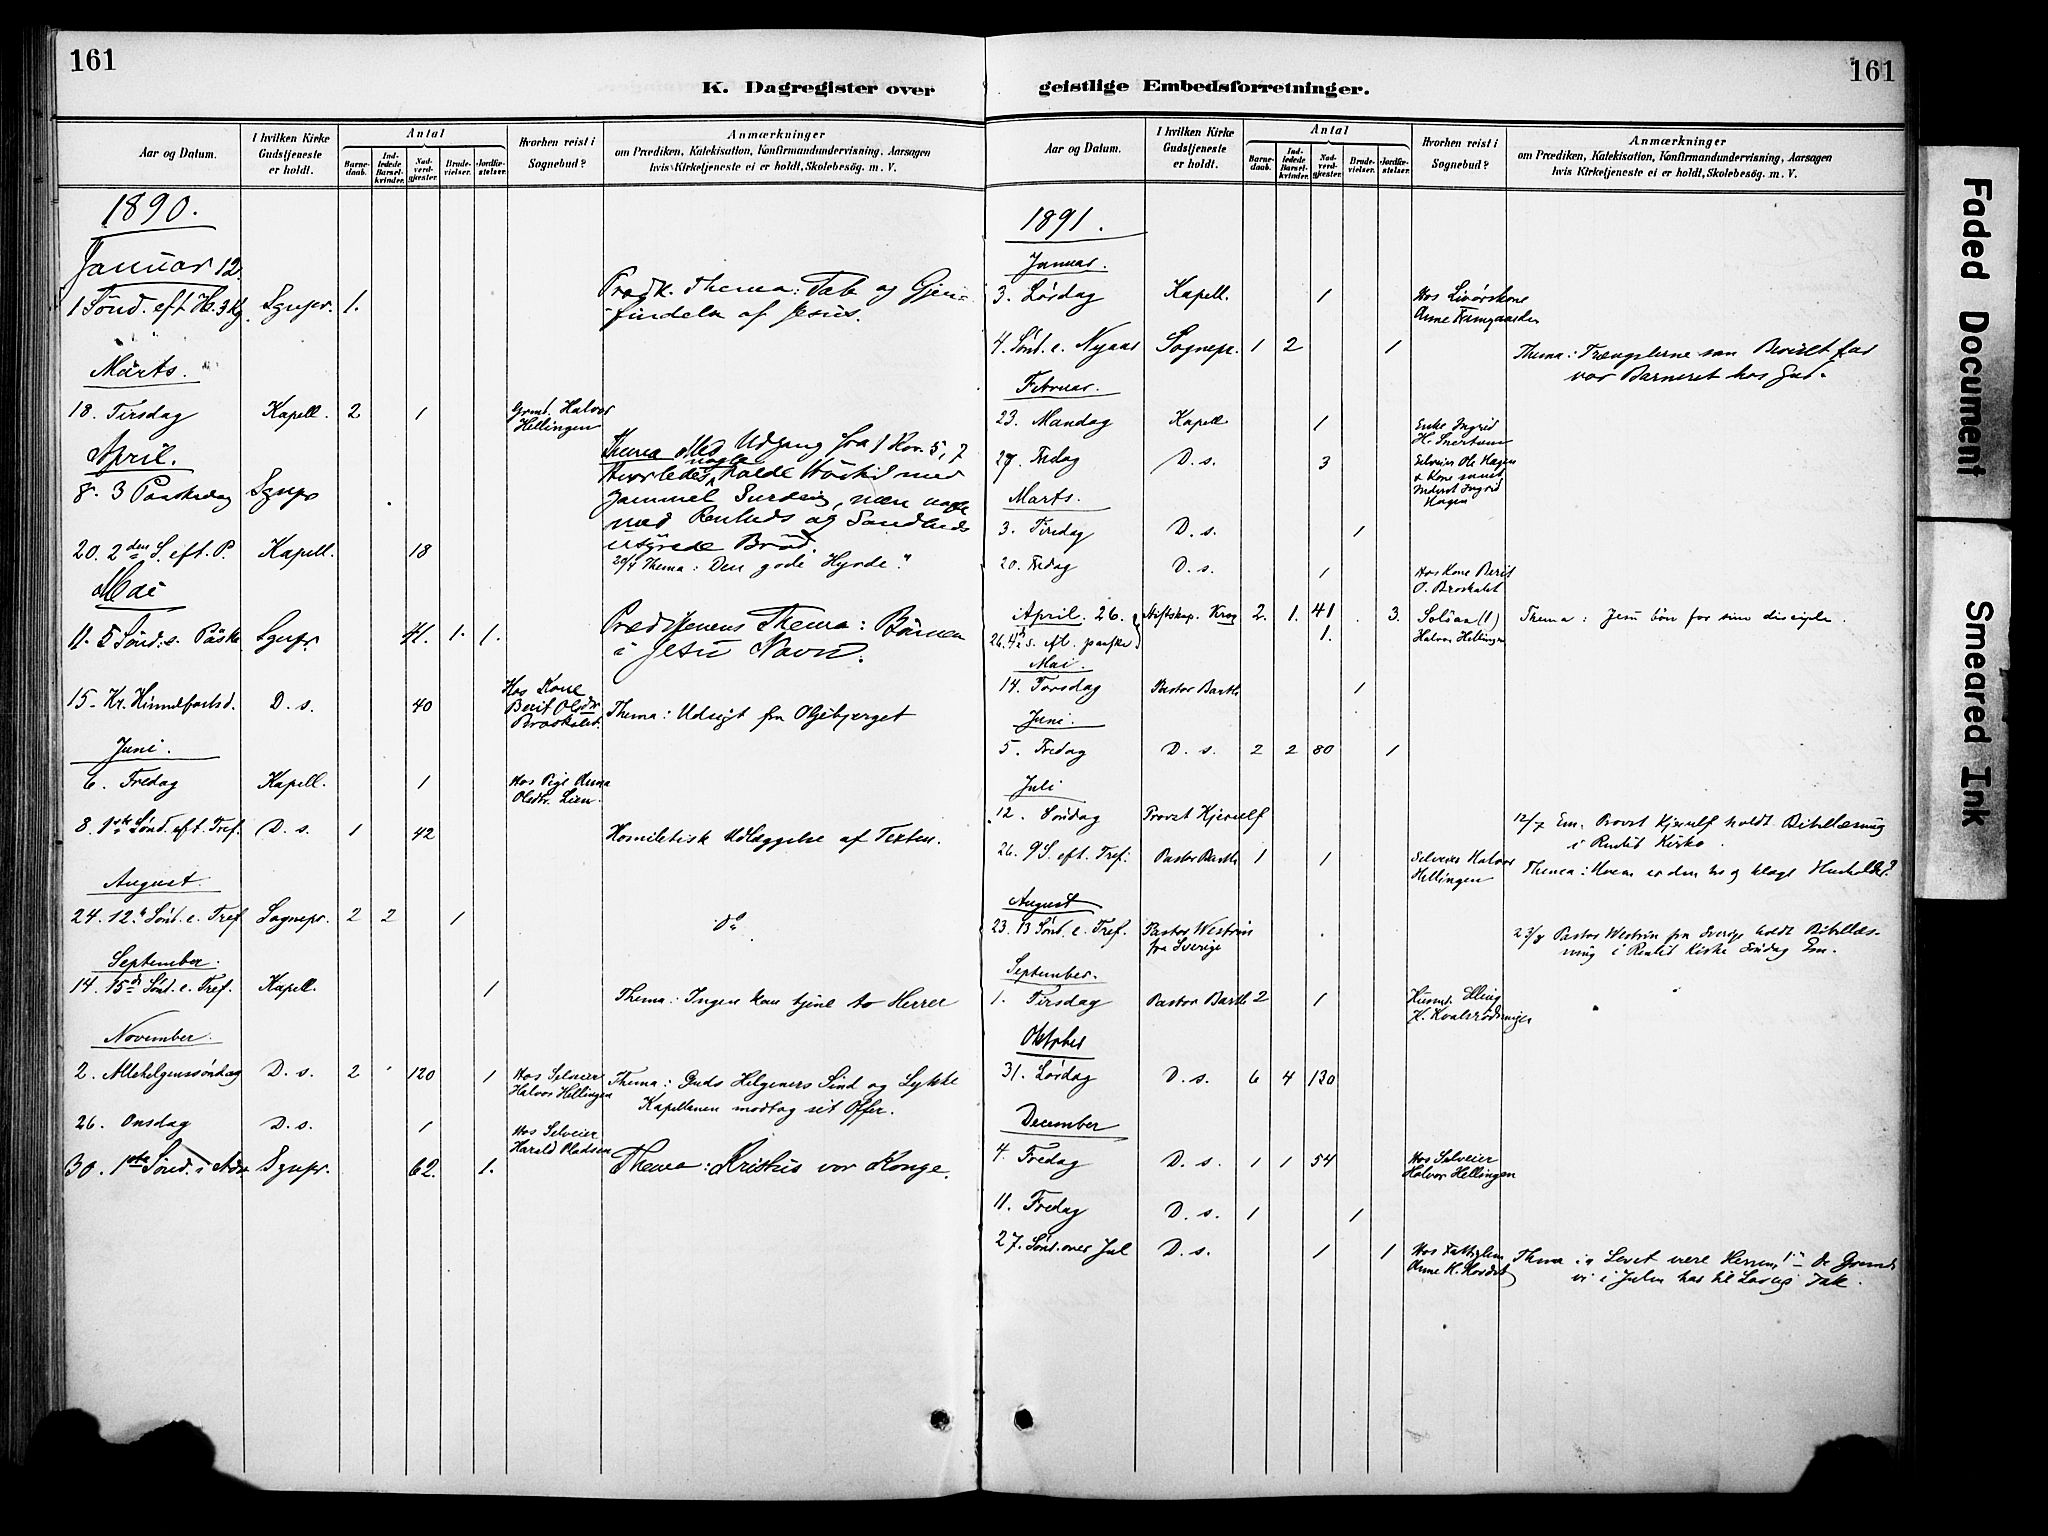 161
K. Dagregister over
Aar og Datum.
I hvilken Kirke Gudstjeneste er holdt.
Antal
Barnedaab.
Indledede Barselkvinder.
Nadverdgjæster.
Brudevielser.
Jordfæstelser.
Hvorhen reist i Sognebud?
Anmærkninger
om Prædiken, Katekisation, Konfirmandundervisning, Aarsagen
hvis Kirketjeneste ei er holdt, Skolebesøg. m. V.
1890.
Januar 12.
1 Sönd. eft H. 3 Kg. Sgnpr. 1. Prædk. Thema: Tab og Gjen-
findelse af Jesus.
Marts.
18. Tirsdag Kapell. 2. 1 Grmd. Halvor
Hellingen
April.
Thema Med Udgang fra 1 Kor. 5, 7
8. 3 Paaskedag Sgnpr Hvorledes nogle holde Höitid med
gammel Surdeig, men nogle
med Renheds og Sandheds
usyrede Bröd.
20. 2den S. eft. P. Kapell. 18 20/4 Thema: Den gode Hyrde."
Mai
11. 5 Sönd. e. Påske Sgnpr. 41. 1. 1. Præd Thema: Bönnen
i Jesu Navn.
15. Kr. Himmelfartsd. D. s. 40 Hos Kone
Berit Olsdr.
Braskelid. Thema: Udsigt fra Oljebjerget
Juni.
6. Fredag Kapell. 1 Hos Pige Anna
Olsdtr. Lien.
8. 1ste Sönd. eft. Tref. D. s. 1 42 Homiletisk Udlæggelse af Texten.
August.
24. 12. Sönd. e. Tref. Sognepr. 2 2 1 do
September.
14. 15d Sönd. e. Tref. Kapell. 1 Thema: Ingen kan tjene to Herrer
November.
2. Allehelgenssøndag D. s. 2 120 1 Hos Selveier
Halvor Hellingen Thema: Guds Helgeners Sind og Lykke
Kapellanen modtog sit Offer.
26. Onsdag D. s. 1 Hos Selveier
Harald Oladsen
30. 1ste Sönd. i Adv. Sgnpr. 62. 1. Thema: Kristus vor Konge.
161
geistlige Embedsforretninger.
Aar og Datum.
I hvilken Kirke Gudstjeneste er holdt.
Antal
Barnedaab.
Indledede Barselkvinder.
Nadverdgjæster.
Brudevielser.
Jordfæstelser.
Hvorhen reist i Sognebud?
Anmærkninger
om Prædiken, Katekisation, Konfirmandundervisning, Aarsagen
hvis Kirketjeneste ei er holdt, Skolebesög. m. V.
1891.
Januar.
3. Lördag Kapell. 1 Hos
Anne
4. Sönd. e. Nyaar Sognepr. 1 2 1 Thema: Trængslerne som Beviset for
vor Barneret hos Gud.
Februar.
23. Mandag Kapell 1 Enke Ingrid
H.
27. Fredag D. s. 3 Selveier Ole Hagen
& Kone samt
Inderst Ingrid
Hagen
Marts.
3. Tirsdag D. s. 1
20. Fredag D. s. 1 Hos Kone Berit
O. Braskelid
April. 26. Stiftskap. Krog 2. 1. 41 3. Solöaa (1) Thema: Jesu bön for sine disciple.
26. 4de s. eft. paaske 1. Halvor Hellingen
Mai.
14. Torsdag Pastor Barth 1
Juni.
5. Fredag D. s. 2 2 80 1
Juli
12. Söndag Provst Kjerulf 12/7 Em. Provst Kjerulf holdt Bibellæsning
i Kirke.
26. 9 S. eft. Tref. Pastor Barth 1 1 Selveier Halvor
Hellingen Thema: Hvem er den tro og kloge Husholder?
August
23. 13 Sönd. e. Tref. Pastor Westrin
fra Sverige 23/8 Pastor Westrin fra Sverige holdt Bibellæs-
ning i Kirke Söndag Em.
September.
1. Tirsdag Pastor Barth 2 1 Husmd. Elling
H.
Oktober
31. Lördag D. s. 6 4 130
December
4. Fredag D. s. 1 1 54 Hos Selveier
Halvor Hellingen
11. Fredag D. s. 1 1
27. Sönd. over Jul D. s. 1 1 Hos Fattiglem
Anne H. Thema: "Lovet være Herren!" – De Grunde
vi i Julen har til Lov og Tak.
Faded Document
Smeared Ink